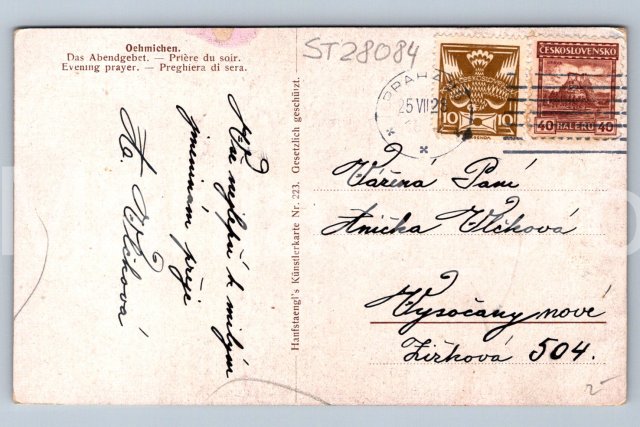 Oehmichen.
Das Abendgebet. — Prière du soir.
Evening prayer. — Preghiera di sera.
ST28084
PRAHA
25 VII 28
10 10
ČESKOSLOVENSKO
40 HALÉŘŮ 40
Vše nejlepší k milým
jmeninám přeje
Vlčková
Hanfstaengl's Künstlerkarte Nr. 223. Gesetzlich geschützt.
Vážená Paní
Anička Vlčková
Vysočany nové
Žižková 504.
2-